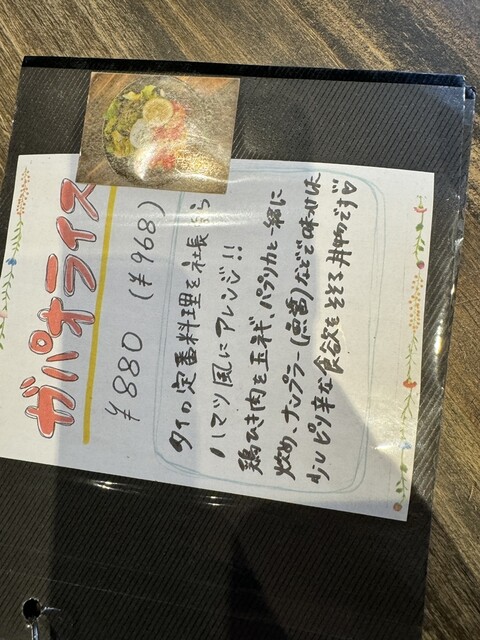 ガパオライス
¥880 (¥968)
タイの定番料理を社長
ハマツ風にアレンジ!!
鶏ひき肉を玉ネギ、パプリカと一緒に
炒め、ナンプラー(魚醤)などで味つけした
少しピリ辛な食欲をそそる丼ものです♡